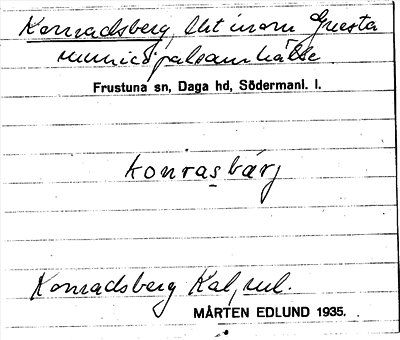 Konradsberg, lht inom Gnesta
municipalsamhälle.
Frustuna sn, Daga hd, Södermanl. l.
konrasbärj
Konradsberg Kal, rul.
MÅRTEN EDLUND 1935.